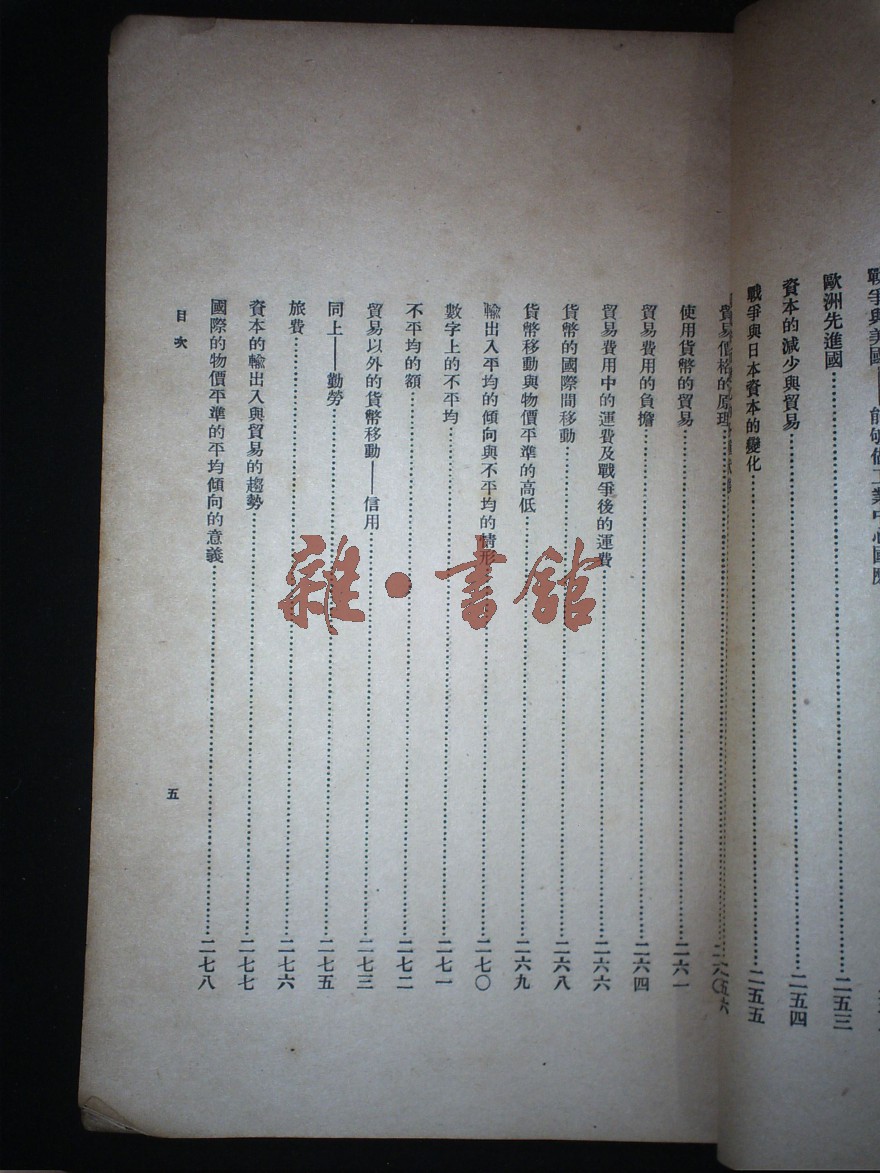 戰爭與美國——能够做工業中心國
歐洲先進國……二五三
資本的減少與貿易……二五四
戰爭與日本資本的變化……二五五
二五六
貿易價格的原理……二六〇
使用貨幣的貿易……二六一
貿易費用的負擔……二六四
貿易費用中的運費及戰爭後的運費……二六六
貨幣的國際間移動……二六八
貨幣移動與物價平準的高低……二六九
輸出入平均的傾向與不平均的情形……二七〇
數字上的不平均……二七一
不平均的額……二七二
貿易以外的貨幣移動——信用……二七三
同上——勤勞……二七五
旅費……二七六
資本的輸出入與貿易的趨勢……二七七
國際的物價平準的平均傾向的意義……二七八
目次
五
雜·書館